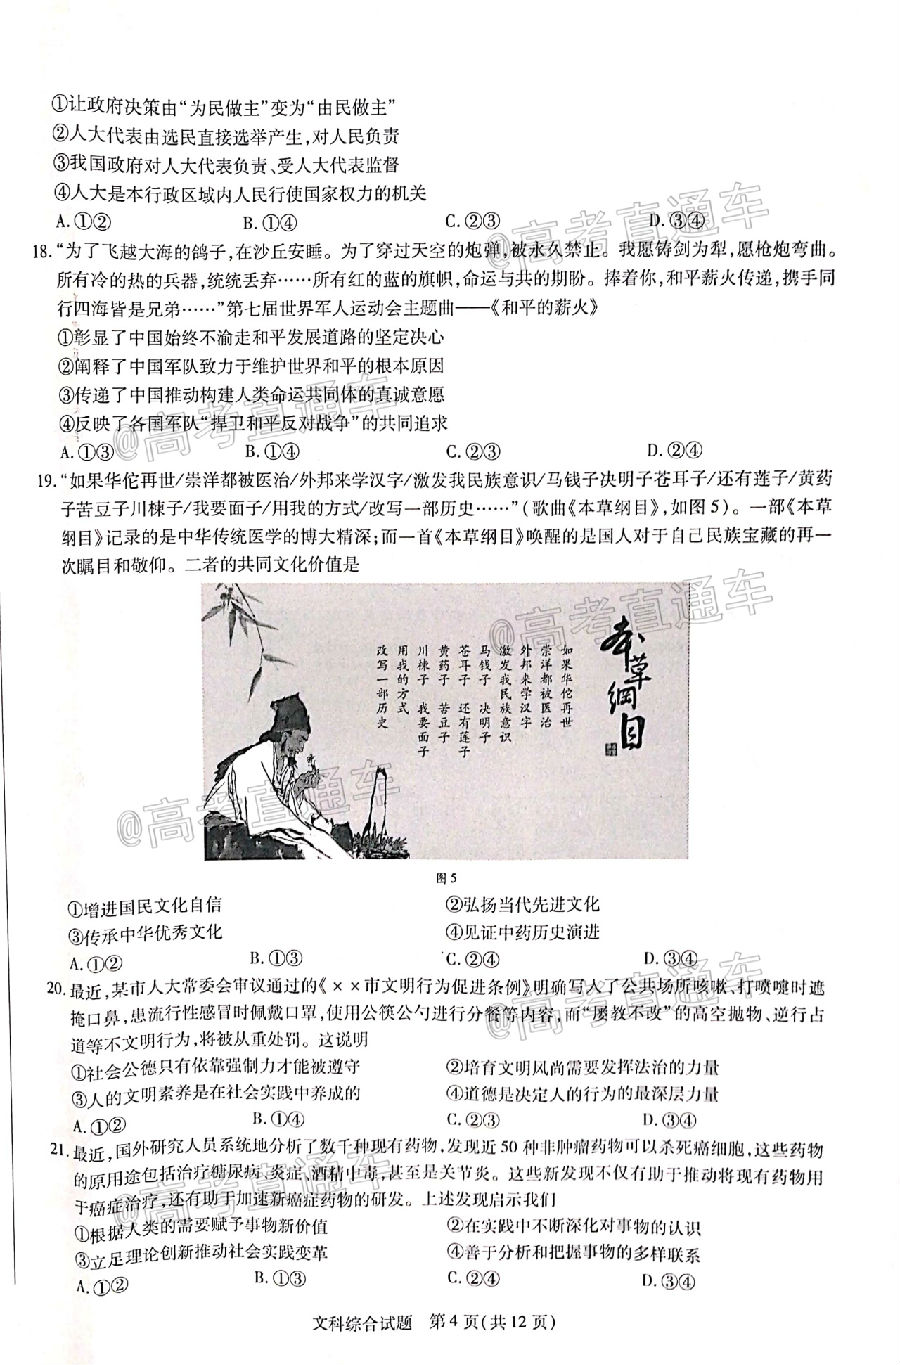 ①让政府决策由“为民做主”变为“由民做主”
②人大代表由选民直接选举产生,对人民负责
③我国政府对人大代表负责、受人大代表监督
④人大是本行政区域内人民行使国家权力的机关
A.①② B.①④ C.②③ D.③④
18.“为了飞越大海的鸽子,在沙丘安睡。为了穿过天空的炮弹,被永久禁止。我愿铸剑为犁,愿枪炮弯曲。
所有冷的热的兵器,统统丢弃……所有红的蓝的旗帜,命运与共的期盼。捧着你,和平薪火传递,携手同
行四海皆是兄弟……”第七届世界军人运动会主题曲——《和平的薪火》
①彰显了中国始终不渝走和平发展道路的坚定决心
②阐释了中国军队致力于维护世界和平的根本原因
③传递了中国推动构建人类命运共同体的真诚意愿
④反映了各国军队“捍卫和平反对战争”的共同追求
A.①③ B.①④ C.②③ D.②④
19.“如果华佗再世/崇洋都被医治/外邦来学汉字/激发我民族意识/马钱子决明子苍耳子/还有莲子/黄药
子苦豆子川楝子/我要面子/用我的方式/改写一部历史……”(歌曲《本草纲目》,如图5)。一部《本草
纲目》记录的是中华传统医学的博大精深;而一首《本草纲目》唤醒的是国人对于自己民族宝藏的再一
次瞩目和敬仰。二者的共同文化价值是
本草纲目
如果华佗再世
崇洋都被医治
外邦来学汉字
激发我民族意识
马钱子 决明子
苍耳子 还有莲子
黄药子 苦豆子
川楝子 我要面子
用我的方式
改写一部历史
图5
①增进国民文化自信 ②弘扬当代先进文化
③传承中华优秀文化 ④见证中药历史演进
A.①② B.①③ C.②④ D.③④
20.最近,某市人大常委会审议通过的《××市文明行为促进条例》明确写入了公共场所咳嗽、打喷嚏时遮
掩口鼻,患流行性感冒时佩戴口罩,使用公筷公勺进行分餐等内容,而“屡教不改”的高空抛物、逆行占
道等不文明行为,将被从重处罚。这说明
①社会公德只有依靠强制力才能被遵守 ②培育文明风尚需要发挥法治的力量
③人的文明素养是在社会实践中养成的 ④道德是决定人的行为的最深层力量
A.①② B.①④ C.②③ D.③④
21.最近,国外研究人员系统地分析了数千种现有药物,发现近50种非肿瘤药物可以杀死癌细胞,这些药物
的原用途包括治疗糖尿病、炎症、酒精中毒,甚至是关节炎。这些新发现不仅有助于推动将现有药物用
于癌症治疗,还有助于加速新癌症药物的研发。上述发现启示我们
①根据人类的需要赋予事物新价值 ②在实践中不断深化对事物的认识
③立足理论创新推动社会实践变革 ④善于分析和把握事物的多样联系
A.①② B.①③ C.②④ D.③④
文科综合试题 第4页(共12页)
@高考直通车
@高考直通车
@高考直通车
@高考直通车
@高考直通车
@高考直通车